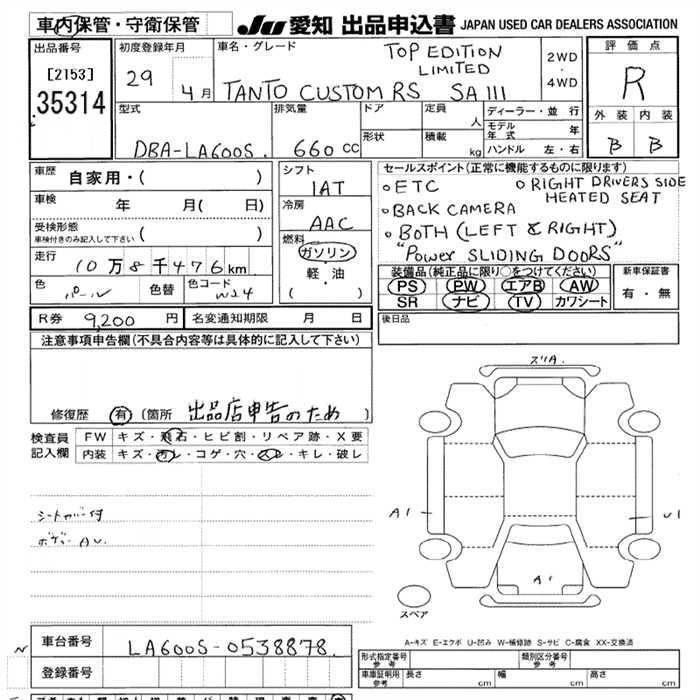 車内保管・守衛保管
JU 愛知 出品申込書 JAPAN USED CAR DEALERS ASSOCIATION
出品番号
[2153]
35314
初度登録年月
29 4月
車名・グレード
TOP EDITION
LIMITED
TANTO CUSTOM RS SA III
2WD
・
4WD
評価点
R
外装 内装
B B
型式
DBA-LA600S.
排気量
660 CC
ドア
形状
定員
人
積載
kg
ディーラー・並行
モデル年式 年
ハンドル 左・右
車歴
自家用・( )
車検
年 月( 日)
受検形態
車検付きのみ記入して下さい ( )
走行
10万8千476km
色
パール
色替
色コード
W24
シフト
IAT
冷房
AAC
燃料
ガソリン
・
軽・油
( )
セールスポイント(正常に機能するものに限ります)
ETC
RIGHT DRIVERS SIDE
HEATED SEAT
BACK CAMERA
BOTH (LEFT & RIGHT)
"Power SLIDING DOORS"
装備品(純正品に限り○をつけてください)
PS PW エアB AW
SR ナビ TV カワシート
新車保証書
有・無
R券 9,200 円
名変通知期限 月 日
後日品
注意事項申告欄(不具合内容等は具体的に記入して下さい)
修復歴 有(箇所 出品店申告のため)
検査員
記入欄
FW キズ・飛石・ヒビ割・リペア跡・X要
内装 キズ・汚レ・コゲ・穴・スレ・キレ・破レ
シートカバー付
ズリA.
A1
U1
A1
スペア
A-キズ E-エクボ U-凹み W-補修跡 S-サビ C-腐食 XX-交換済
車台番号
LA600S-0538878.
登録番号
形式指定番号
参考
類別区分番号
参考
車庫証明用
参考
長さ
cm
幅
cm
高さ
cm